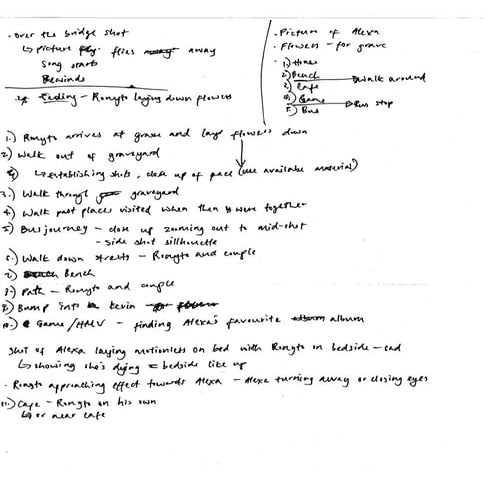 · Over the bridge shot
↳ picture flies away
Song starts
Rewinds
Ending – Ronyto laying down flowers
· Picture of Alexa
· Flowers – for grave
· 1) Home
2) Bench
3) Cafe
Walk around
4) Game
5) Bus
Bus stop
1.) Ronyto arrives at grave and lays flowers down
2) Walk out of graveyard
↳ Establishing shots, close up of face (use available material)
3.) Walk through graveyard
4.) Walk past places visited when they were together
5) Bus journey – close up zooming out to mid-shot
– side shot sillhouette
6.) Walk down streets – Ronyto and couple
7.) Bench
8.) Path – Ronyto and couple
9.) Bump into Kevin
10.) Game/HMV – finding Alexa's favourite album
Shot of Alexa laying motionless on bed with Ronyto on bedside – sad
↳ showing she's dying = bedside like up
· Ronyto approaching effect towards Alexa – Alexa turning away or closing eyes
11.) Cafe – Ronyto on his own
↳ or near cafe